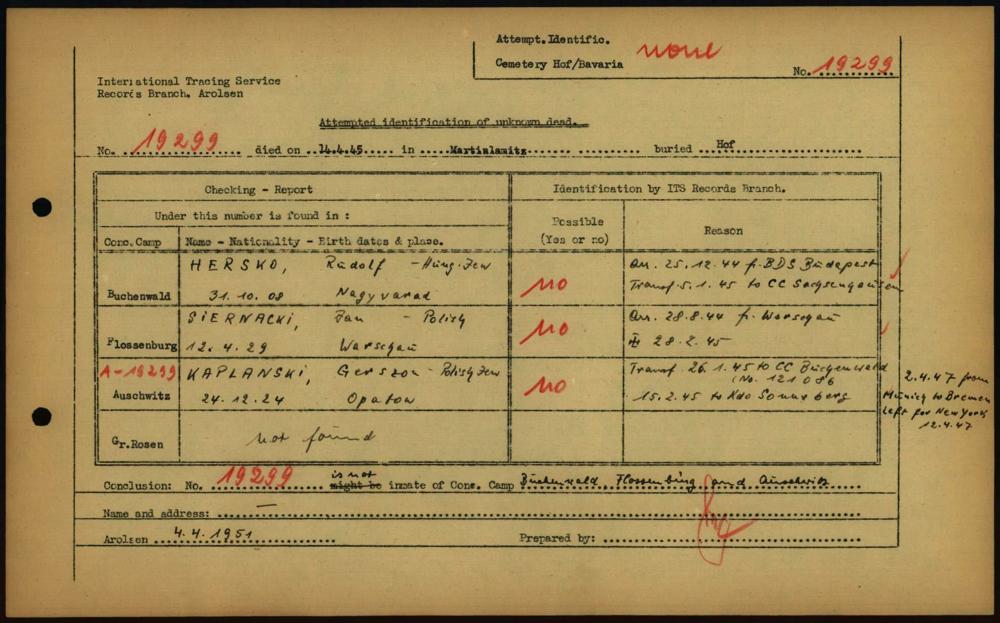 Attempt. Identific.
Cemetery Hof/Bavaria none
No. 19299
International Tracing Service
Records Branch. Arolsen
Attempted identification of unknown dead.
No. 19299 died on 14.4.45 in Martinlamitz buried Hof
Checking - Report
Identification by ITS Records Branch.
Under this number is found in :
Possible (Yes or no)
Reason
Conc. Camp Name - Nationality - Birth dates & place.
HERSKO, Rudolf - Hung. Jew
Arr. 25.12.44 fr. BDS Budapest
Buchenwald 31.10.08 Nagyvarad
no
Transf. 5.1.45 to CC Sachsenhausen
SIERNACKI, Jan - Polish
Arr. 28.8.44 fr. Warschau
no
Flossenburg 12.4.29 Warschau
28.2.45
A-19299 KAPLANSKI, Gerszon - Polish Jew
Transf. 26.1.45 to CC Buchenwald
(No. 121086
no
Auschwitz 24.12.24 Opatow
15.2.45 to Kdo Sonneberg
2.4.47 from
Munich to Bremen
left for New York
12.4.47
Gr. Rosen not found
Conclusion: No. 19299 is not might be inmate of Conc. Camp Buchenwald, Flossenbürg and Auschwitz
Name and address: —
Arolsen 4.4.1951 Prepared by: